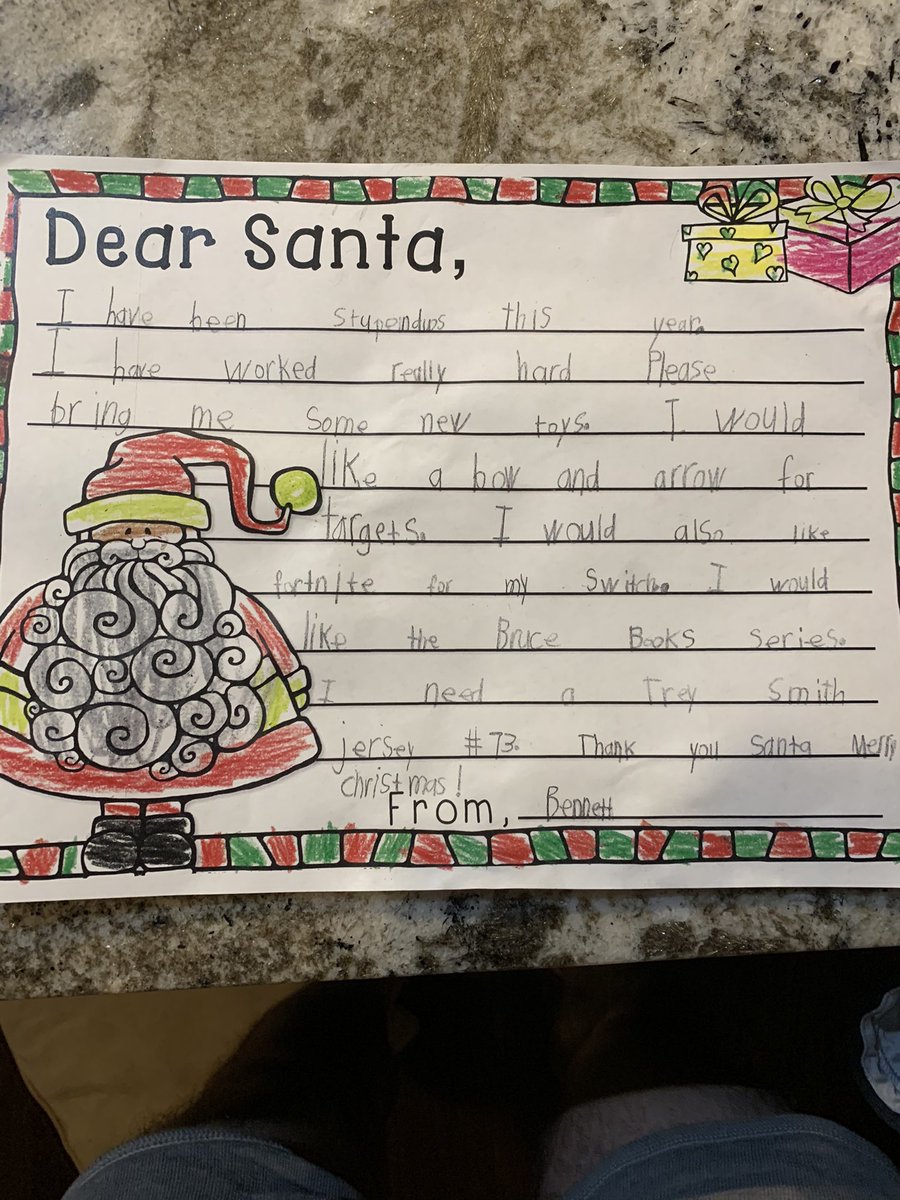 Dear Santa,
I have been stupendups this year.
I have worked really hard Please
bring me some new toys. I would
like a bow and arrow for
targets. I would also like
fortnite for my Switch. I would
like the Bruce Books series.
I need a Trey Smith
jersey #73. Thank you Santa Merry
christmas!
From, Bennett